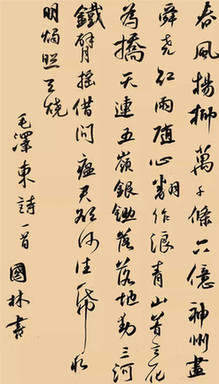 春風楊柳萬千條六億神州盡
舜堯紅雨隨心翻作浪青山著意化
為橋天連五嶺銀鋤落地動三河
鐵臂搖借問瘟君欲何往紙船
明燭照天燒
毛澤東詩一首 國林書